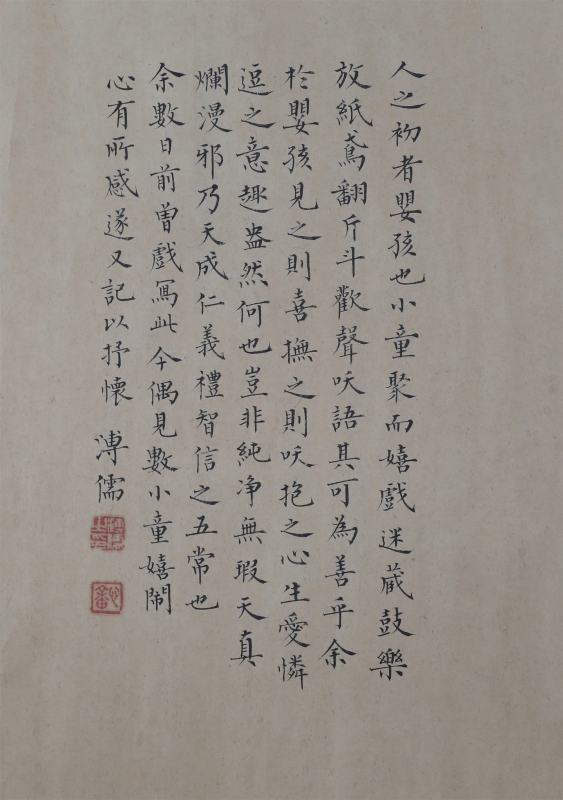 人之初者嬰孩也小童聚而嬉戲迷蔵鼓樂
放紙鳶翻斤斗歡聲咲語其可為善乎余
於嬰孩見之則喜撫之則咲抱之心生愛憐
逗之意趣盎然何也豈非純净無瑕天真
爛漫邪乃天成仁義禮智信之五常也
余數日前曾戲寫此今偶見數小童嬉鬧
心有所感遂又記以抒懷
溥儒